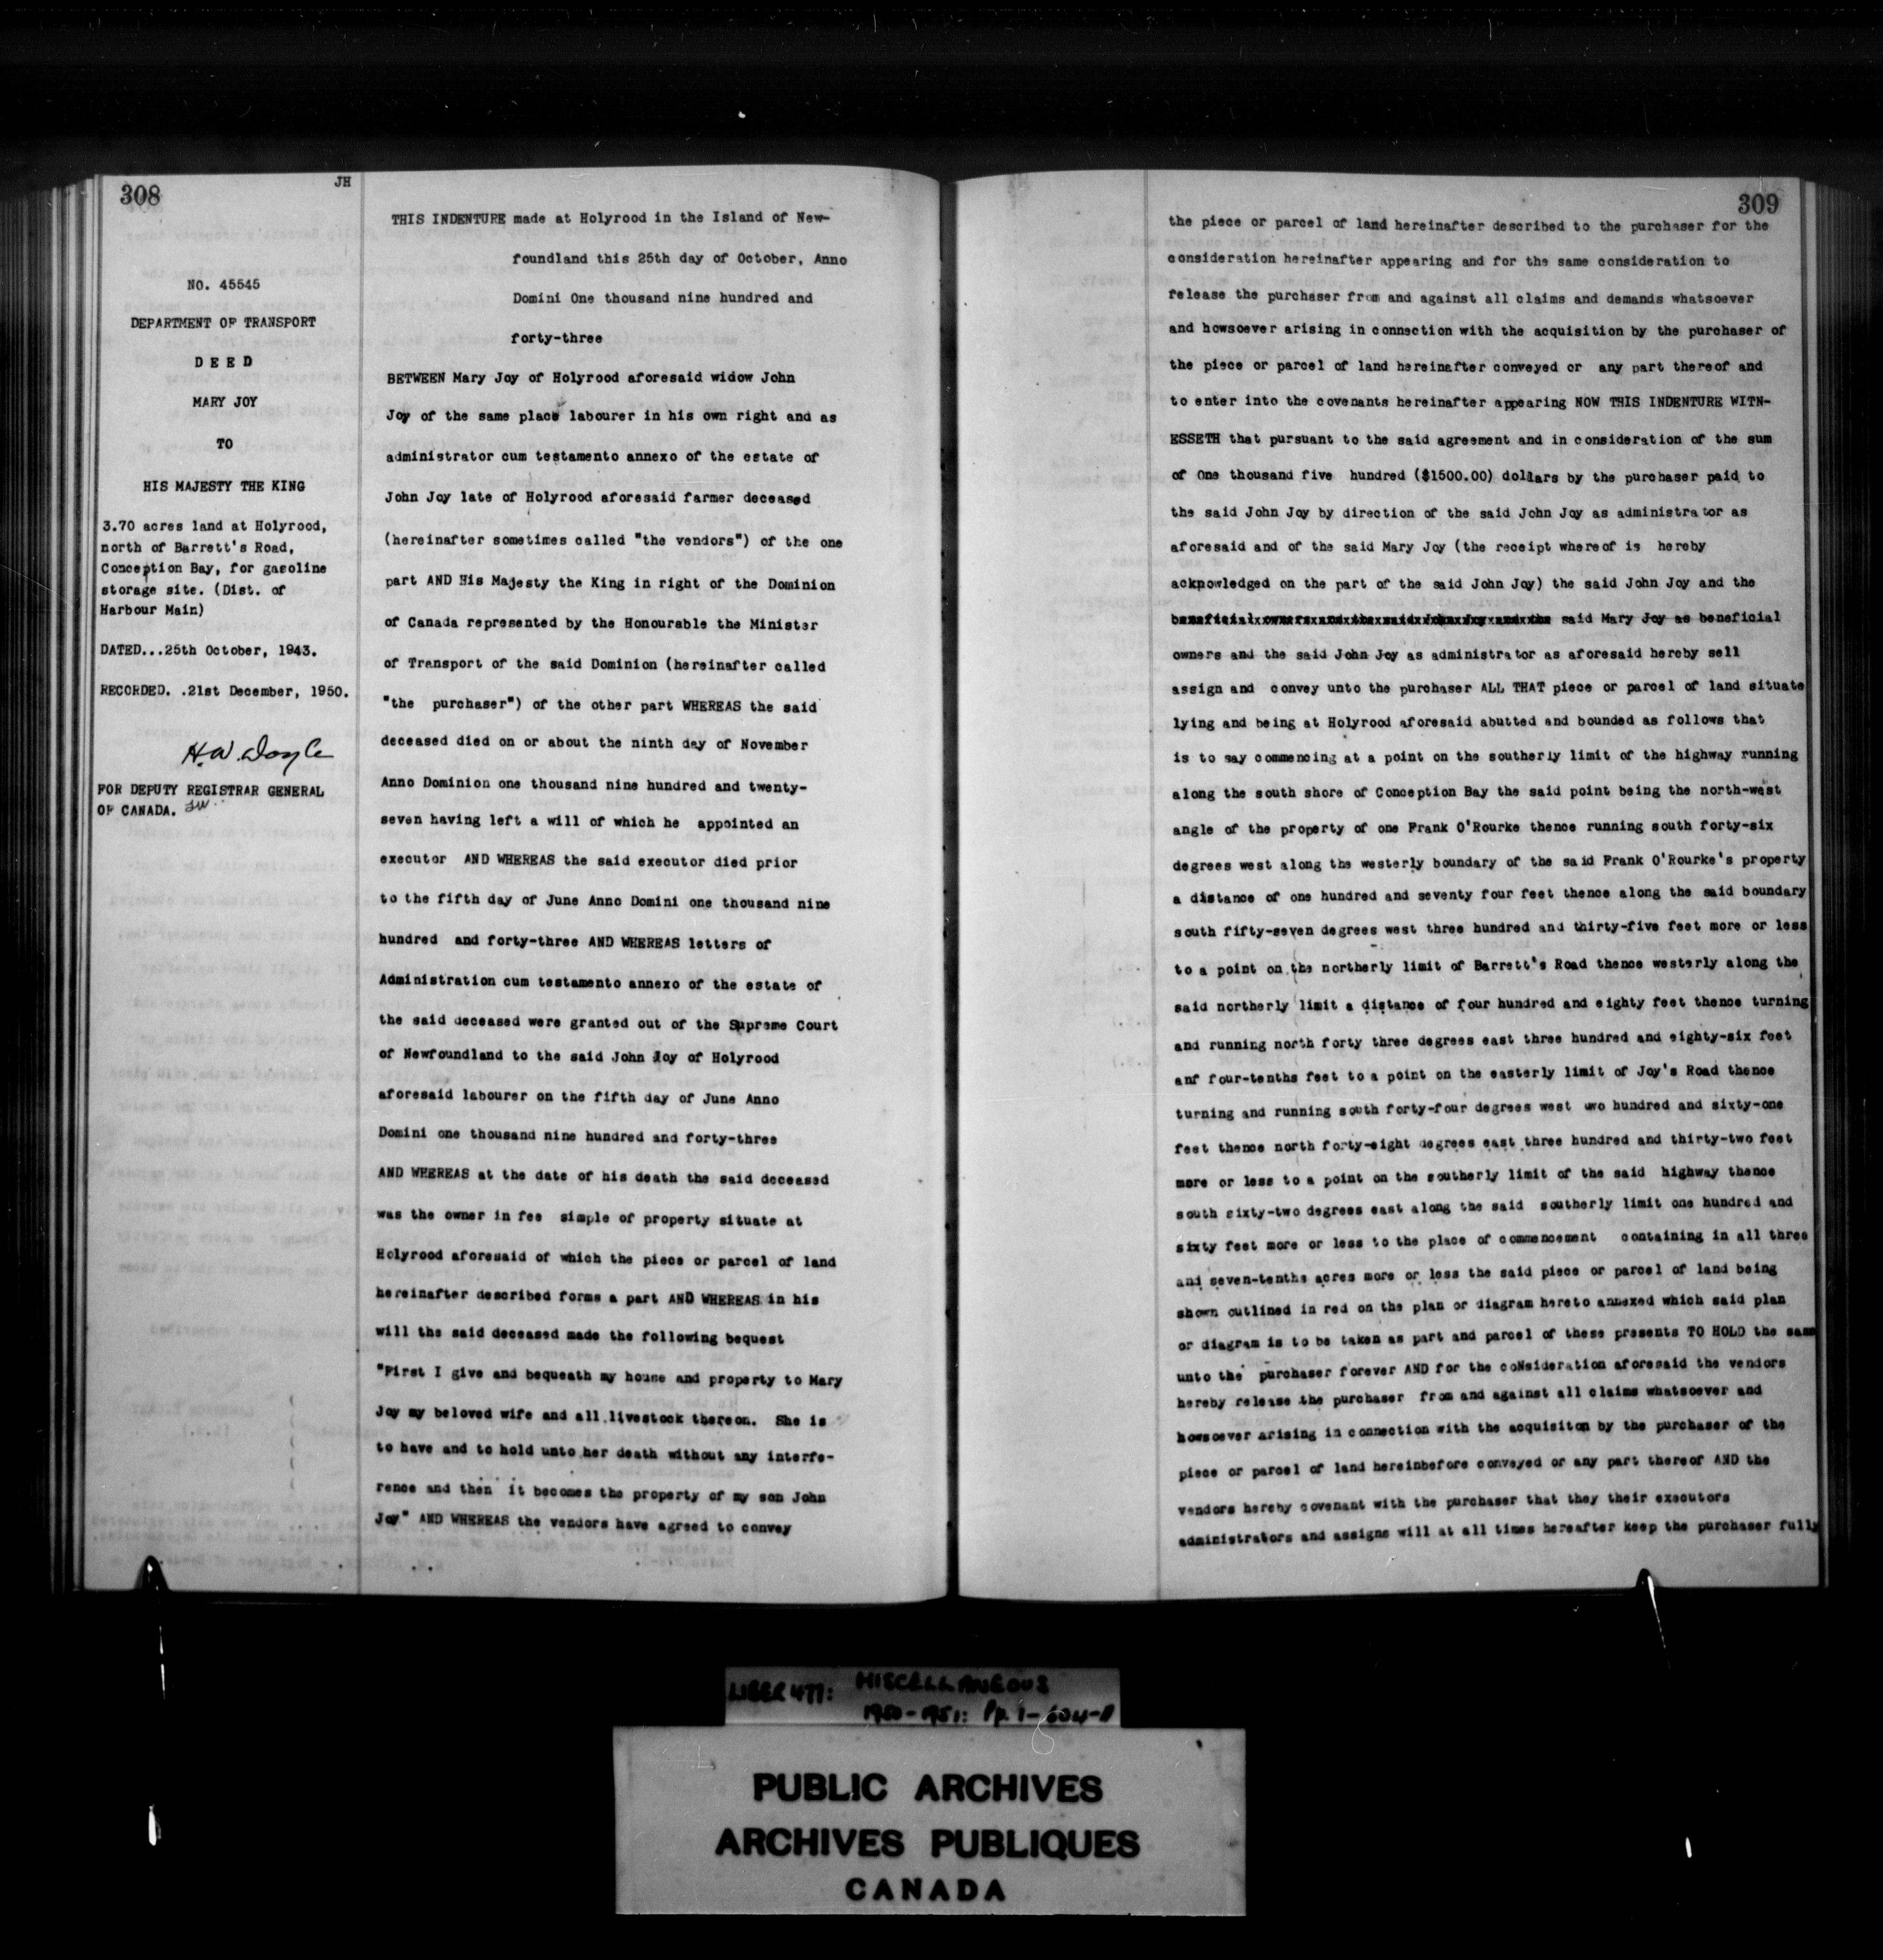 308
JH
NO. 45545
DEPARTMENT OF TRANSPORT
D E E D
MARY JOY
TO
HIS MAJESTY THE KING
3.70 acres land at Holyrood,
north of Barrett's Road,
Conception Bay, for gasoline
storage site. (Dist. of
Harbour Main)
DATED...25th October, 1943.
RECORDED. .21st December, 1950.
H.W. Doyle
FOR DEPUTY REGISTRAR GENERAL
OF CANADA.
THIS INDENTURE made at Holyrood in the Island of New-
foundland this 25th day of October, Anno
Domini One thousand nine hundred and
forty-three
BETWEEN Mary Joy of Holyrood aforesaid widow John
Joy of the same place labourer in his own right and as
administrator cum testamento annexo of the estate of
John Joy late of Holyrood aforesaid farmer deceased
(hereinafter sometimes called "the vendors") of the one
part AND His Majesty the King in right of the Dominion
of Canada represented by the Honourable the Minister
of Transport of the said Dominion (hereinafter called
"the purchaser") of the other part WHEREAS the said
deceased died on or about the ninth day of November
Anno Dominion one thousand nine hundred and twenty-
seven having left a will of which he appointed an
executor AND WHEREAS the said executor died prior
to the fifth day of June Anno Domini one thousand nine
hundred and forty-three AND WHEREAS letters of
Administration cum testamento annexo of the estate of
the said deceased were granted out of the Supreme Court
of Newfoundland to the said John Joy of Holyrood
aforesaid labourer on the fifth day of June Anno
Domini one thousand nine hundred and forty-three
AND WHEREAS at the date of his death the said deceased
was the owner in fee simple of property situate at
Holyrood aforesaid of which the piece or parcel of land
hereinafter described forms a part AND WHEREAS in his
will the said deceased made the following bequest
"First I give and bequeath my house and property to Mary
Joy my beloved wife and all livestock thereon. She is
to have and to hold unto her death without any interfe-
rence and then it becomes the property of my son John
Joy" AND WHEREAS the vendors have agreed to convey
309
the piece or parcel of land hereinafter described to the purchaser for the
consideration hereinafter appearing and for the same consideration to
release the purchaser from and against all claims and demands whatsoever
and howsoever arising in connection with the acquisition by the purchaser of
the piece or parcel of land hereinafter conveyed or any part thereof and
to enter into the covenants hereinafter appearing NOW THIS INDENTURE WITN-
ESSETH that pursuant to the said agreement and in consideration of the sum
of One thousand five hundred ($1500.00) dollars by the purchaser paid to
the said John Joy by direction of the said John Joy as administrator as
aforesaid and of the said Mary Joy (the receipt whereof is hereby
acknowledged on the part of the said John Joy) the said John Joy and the
beneficial owners and the said John Joy and the said Mary Joy as beneficial
owners and the said John Joy as administrator as aforesaid hereby sell
assign and convey unto the purchaser ALL THAT piece or parcel of land situate
lying and being at Holyrood aforesaid abutted and bounded as follows that
is to say commencing at a point on the southerly limit of the highway running
along the south shore of Conception Bay the said point being the north-west
angle of the property of one Frank O'Rourke thence running south forty-six
degrees west along the westerly boundary of the said Frank O'Rourke's property
a distance of one hundred and seventy four feet thence along the said boundary
south fifty-seven degrees west three hundred and thirty-five feet more or less
to a point on the northerly limit of Barrett's Road thence westerly along the
said northerly limit a distance of four hundred and eighty feet thence turning
and running north forty three degrees east three hundred and eighty-six feet
anf four-tenths feet to a point on the easterly limit of Joy's Road thence
turning and running south forty-four degrees west two hundred and sixty-one
feet thence north forty-eight degrees east three hundred and thirty-two feet
more or less to a point on the southerly limit of the said highway thence
south sixty-two degrees east along the said southerly limit one hundred and
sixty feet more or less to the place of commencement containing in all three
and seven-tenths acres more or less the said piece or parcel of land being
shown outlined in red on the plan or diagram hereto annexed which said plan
or diagram is to be taken as part and parcel of these presents TO HOLD the same
unto the purchaser forever AND for the coNsideration aforesaid the vendors
hereby release the purchaser from and against all claims whatsoever and
howsoever arising in connection with the acquisiton by the purchaser of the
piece or parcel of land hereinbefore conveyed or any part thereof AND the
vendors hereby covenant with the purchaser that they their executors
administrators and assigns will at all times hereafter keep the purchaser fully
LIBER 477: MISCELLANEOUS
1950-1951: Pp. 1-604-A
PUBLIC ARCHIVES
ARCHIVES PUBLIQUES
CANADA